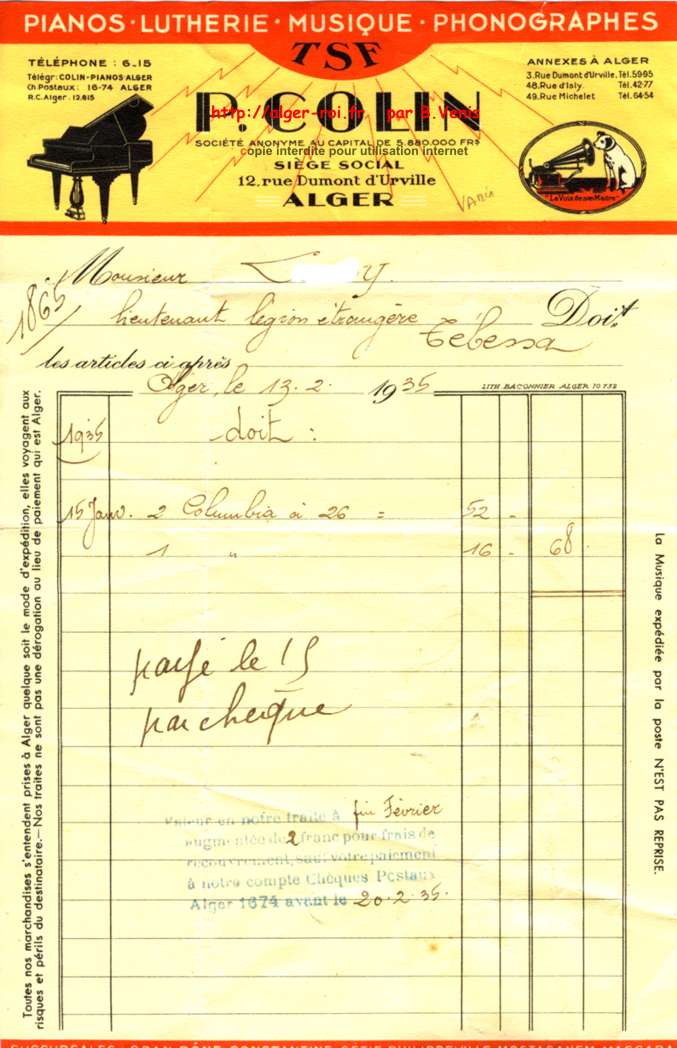 PIANOS · LUTHERIE · MUSIQUE · PHONOGRAPHES
TSF
TÉLÉPHONE : 6-15
Télégr: COLIN-PIANOS-ALGER
Ch. Postaux: 16-74 ALGER
R.C. Alger. 12.815
ANNEXES À ALGER
3. Rue Dumont d'Urville. Tél. 59-95
48. Rue d'Isly. Tél. 42-77
49. Rue Michelet Tél. 64-54
P. COLIN
http://alger-roi.fr par B.Venis
SOCIÉTÉ ANONYME AU CAPITAL DE 5.880.000 FRS
copie interdite pour utilisation internet
SIÈGE SOCIAL
12, rue Dumont d'Urville
ALGER
"La Voix de son Maître"
Monsieur L y.
1865
lieutenant légion étrangère Tébessa Doit
les articles ci après
Alger, le 13.2. 1935
LITH. BACONNIER ALGER 70 732
1935 doit :
15 Janv. 2 Columbia à 26 = 52 -
1 " 16 - 68
payé le 15
par chèque
Valeur en notre traite à fin Février
augmentée de 2 franc pour frais de
recouvrement, sauf votre paiement
à notre compte Chèques Postaux
Alger 1674 avant le 20.2.35.
Toutes nos marchandises s'entendent prises à Alger quelque soit le mode d'expédition, elles voyagent aux
risques et périls du destinataire.—Nos traites ne sont pas une dérogation au lieu de paiement qui est Alger.
La Musique expédiée par la poste N'EST PAS REPRISE.